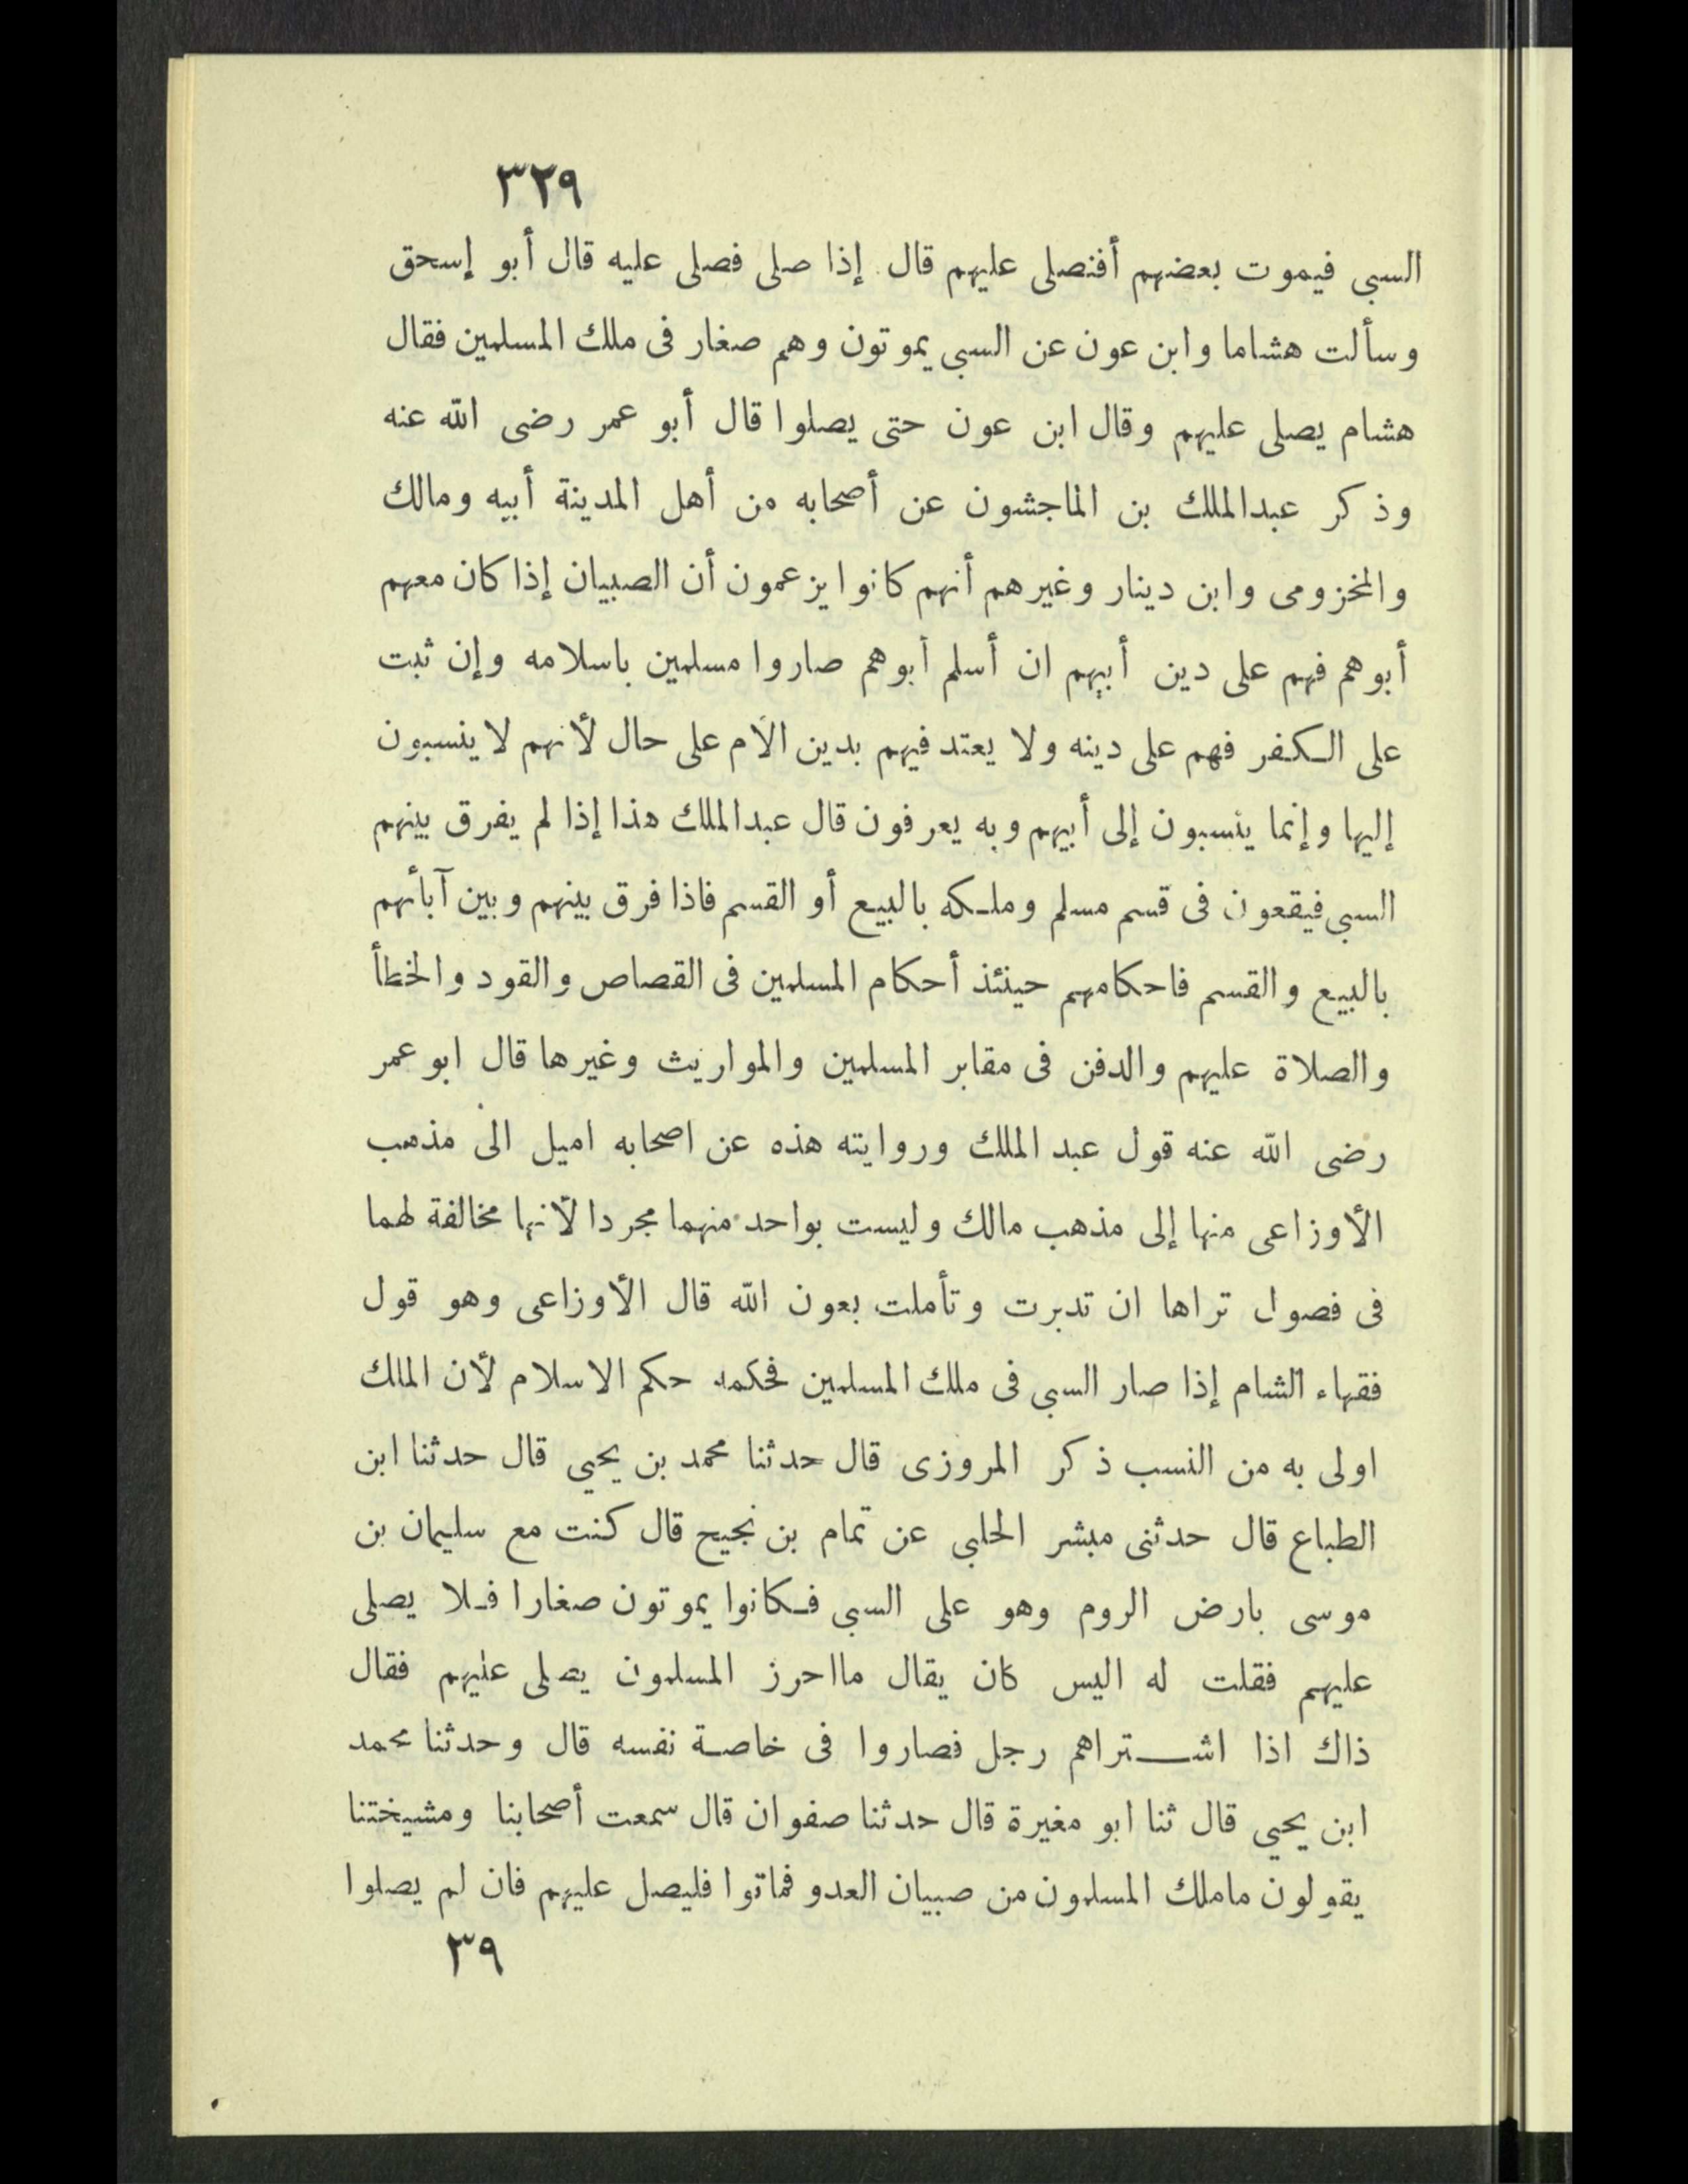 ٣٢٩
السبى فيموت بعضهم أفنصلى عليهم قال إذا صلى فصلى عليه قال أبو إسحق
وسألت هشاما وابن عون عن السبى يموتون وهم صغار فى ملك المسلمين فقال
هشام يصلى عليهم وقال ابن عون حتى يصلوا قال أبو عمر رضى الله عنه
وذكر عبدالملك بن الماجشون عن أصحابه من أهل المدينة أبيه ومالك
والمخزومى وابن دينار وغيرهم أنهم كانوا يزعمون أن الصبيان إذا كان معهم
أبوهم فهم على دين أبيهم ان أسلم أبوهم صاروا مسلمين باسلامه وإن ثبت
على الكفر فهم على دينه ولا يعتد فيهم بدين الأم على حال لأنهم لا ينسبون
إليها وإنما ينسبون إلى أبيهم وبه يعرفون قال عبدالملك هذا إذا لم يفرق بينهم
السبى فيقعون فى قسم مسلم وملكه بالبيع أو القسم فاذا فرق بينهم وبين آبأئهم
بالبيع والقسم فاحكامهم حينئذ أحكام المسلمين فى القصاص والقود والخطأ
والصلاة عليهم والدفن فى مقابر المسلمين والمواريث وغيرها قال ابو عمر
رضى الله عنه قول عبد الملك وروايته هذه عن اصحابه اميل الى مذهب
الأوزاعى منها إلى مذهب مالك وليست بواحد منهما مجردا لأنها مخالفة لهما
فى فصول تراها ان تدبرت وتأملت بعون الله قال الأوزاعى وهو قول
فقهاء الشام إذا صار السبى فى ملك المسلمين فحكمه حكم الاسلام لأن الملك
اولى به من النسب ذكر المروزى قال حدثنا محمد بن يحيى قال حدثنا ابن
الطباع قال حدثنى مبشر الحلبى عن تمام بن نجيح قال كنت مع سليمان بن
موسى بارض الروم وهو على السبى فكانوا يموتون صغارا فلا يصلى
عليهم فقلت له اليس كان يقال مااحرز المسلمون يصلى عليهم فقال
ذاك اذا اشتراهم رجل فصاروا فى خاصة نفسه قال وحدثنا محمد
ابن يحيى قال ثنا ابو مغيرة قال حدثنا صفوان قال سمعت أصحابنا ومشيختنا
يقولون ماملك المسلمون من صبيان العدو فماتوا فليصل عليهم فان لم يصلوا
٣٩